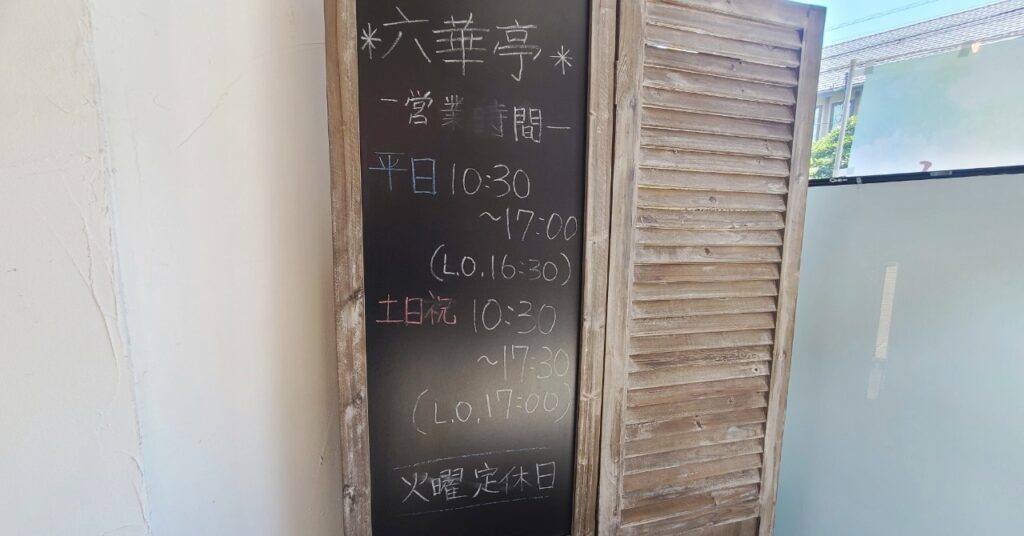 *六華亭*
-営業時間-
平日 10:30
~17:00
(L.O.16:30)
土日祝 10:30
~17:30
(L.O.17:00)
火曜定休日